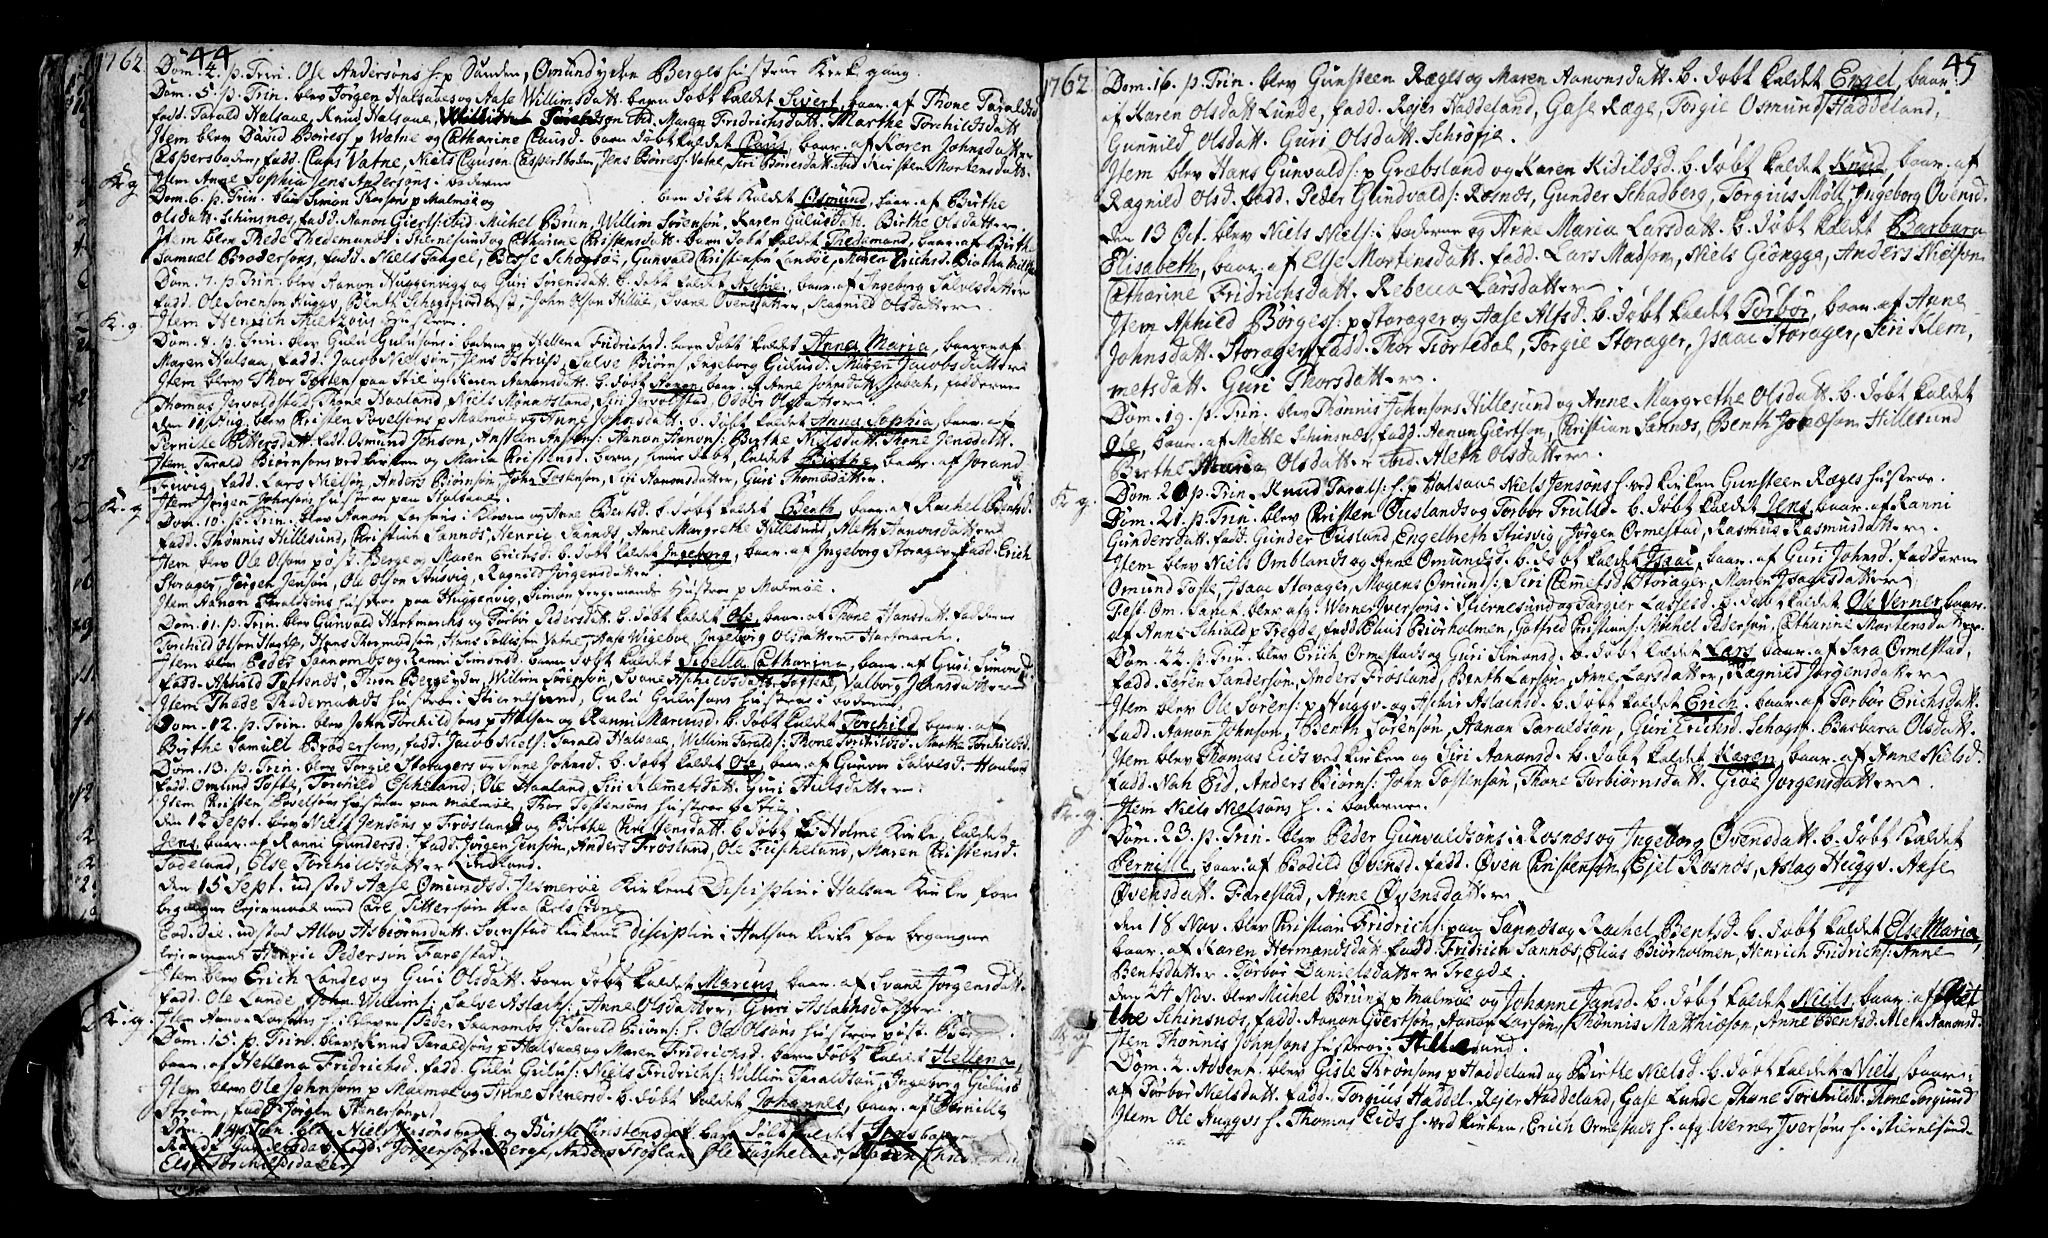 1762
44
Dom. 4. p. Trin. Ole Andersøns h. p Sanden, Omund yden Berges hustrue Kirkegang.
Dom. 5. p. Trin. blev Jørgen Halsaaes og Aase Willimsdatt. barn døbt kaldet Sivert, baar. af Thone Taraldsd
fadd. Tarald Halsaae, Knud Halsaae, ibid. Maren Fridrichsdatt. Marthe Torchildsdatt
Item blev David Børres p Watne og Catharine Clausd. barn døbt kaldet Claus, baar. af Karen Johnsdatter
Caspersboden, fadd. Claus Vatne, Niels Clausen Caspersboden, Jens Børres Vatne, Siri Børresdatt. ibid Kirsten Mortensdatt.
K. g
Item Anne Sophia Jens Andersøns i boderne
Dom. 6. p. Trin. blev Simon Thorsen p Malmøe og barn døbt kaldet Osmund, baar. af Birthe
Olsdatt. Schinsnes, fadd. Aanon Giertsen ibid. Michel Brun, Willim Sørensøn, Karen Gulusdatt. Birthe Olsdatter
Item blev Thede Thedemands i Stiernesund og Catharine Christensdatt. barn døbt kaldet Thedemand, baar. af Birthe
Samuel Brodersøns, fadd. Niels Tangel, Gunvald Christensøn Landøe, Maren Erichsd. Birtha
Dom. 7. p. Trin. blev Aanon Huggenvigs og Guri Sørensdatt. b. døbt kaldet Aschie, baar. af Ingeborg Salvesdatter
fadd. Ole Sørenson Huggv, Benth John Olson Hilløe, Svane Ovensdatter, Ragnild Olsdatter.
K. g.
Item Henrich hustroe.
Dom. 8. p. Trin. blev Gulu Gulusons i boderne og Hellena Fridrichsd. barn døbt kaldet Anne Maria, baaren af
Maren Halsaa, fadd. Jacob Nielsøn, Jens Salve Biørn, Ingeborg Gulusd. Maren Jacobsdatter
Item blev Thor Tostens paa Stie og Karen Aanonsdatt. b. døbt kaldet Aanon, baar. af Anne Johnsdatt. fadderne
Thomas Jervoldstad, Thone Haaland, Niels Mannesland, Siri Jervolstad, Olsdatter
den 11 Aug. blev Christen Povelsøns p Malmøe og Anne Johnsdatt. b. døbt kaldet Anna Sophia, baar. af
Pernille Pettersdatt. fadd. Osmund Jenson, Ansteen Ansons: Aanon Hanons: Birthe Nielsdatt. Thone Jensdatt.
Item Tarald Biørnsons ved kirken og Maria Christensd. barn, hieme døbt, kaldet Birthe, baar. af Jorand
fadd. Lars Nielsøn, Anders Biørnsøn, John Tostenson, Siri Aanonsdatter, Guri Thomsdatter.
K. g
Item Jørgen Johnsøns hustroe paa Halsaae
Dom. 10. p. Trin. blev Aanon Larsøns i Kleven og Anne Bentsd. b. døbt kaldet Benth, baar. af Rachel Bentsd.
fadd. Thønnis Hillesund, Christian Sannøs, Henric Sannøs, Anne Margrethe Hillesund, Aleth Aanonsdatter
Item blev Ole Olsøns p øst. Berge og Maren Erichsd. b. døbt kaldet Ingeborg, baar. af Ingeborg Storager, fadd. Erich
Storager, Jørgen Jensøn, Ole Olson Snusvig, Ragnild Jørgensdatter
Item Aanon Taraldsøns hustroe paa Huggenvig, Simon hustroe p Malmøe
Dom. 11. p. Trin. blev Gunvald Hartmarchs og Torbør Pedersdatt. b. døbt kaldet Ole, baar. af Thone Hansdatt. fadderne
Torchild Olson Hans Thormodsøn, Hans Tollefsen Vatne, Aase Wigeboe, Ingeborg Olsdatter Hartmarch.
Item blev Peder Saanombs og Ranni Simonsd. barn døbt kaldet Sibella Catharina, baar. af Guri Simonsd.
fadd. Aschild Tostends, Thron Berge yder, Willim Sørensøn, Svane Aschildsdatt. Tostene, Valborg Johnsdatter
Item Thede Thedemands hustroe Stiernesund, Gulu Gulusons hustroe i boderne
Dom. 12. p. Trin. blev John Torchildsøns p Halsaa og Ranni Marcusd. b. døbt kaldet Torchild, baar. af
Birthe Samuell Brodersøns, fadd. Jacob Niels: Tarald Halsaae, Willim Tarald: Thone Torchildsd. Marthe Torchildsd.
Dom. 13. p. Trin. blev Torgie Storagers og Anne Johnsd. b. døbt kaldet Ole, baar. af Gunvor Salvesd.
fadd. Omund Tofte, Torchild Espheland, Ole Haaland, Siri Klemetsdatt. Guri Thulsdatter
Item Christen Povelsøns hustroe paa Malmøe, Thor Tostensøns hustroe p Stie
den 12 Sept. blev Niels Jensøns p Frøsland og Birthe Christensdatt. b. døbt i Holme Kirke, kaldet
Jens, baar. af Ranni Gundersd: fadd. Jørgen Jensøn, Anders Frøsland, Ole Fuscheland, Maren Christensd.
Fadeland, Else Torchildsdatter
den 15 Sept. udstod Aase Omundsd. Jesmerøe Kirkens Disciplin i Halsaa Kirke for
begangne Leiermaal med Carl Pittersøn fra Carls
Eod. die udstod Allov Asbiørnsdatt. Soenstad kirkens disciplin i Halsaae kirke for begangne
Leiermaal Henric Pederson Farestad.
Item blev Erich Lindes og Guri Olsdatt. barn døbt kaldet Marcus, baar. af Svane Jørgensdatt.
fadd. Ole Lunde, John Willims: Salve Aslachs: Anne Olsdatter, Guri Aslachsdatter.
K. g.
Item Aanon Larsøns h. i Kleven, Peder Saanombs h. Tarald Biørns: h. Ole Olsøns hustroe p øst. Berg
Dom. 15. p. Trin. blev Knud Taraldsøns p Halsaae og Maren Fridrichsd. barn døbt kaldet Hellena
baar. af Hellena Fridrichsd. fadd. Gulu Gulus: Niels Fridrichs: Willim Taraldsøn, Ingeborg Gulusd
Item blev Ole Johnsøns p Malmøe og Anne Stenersd. b. døbt kaldet Johannes, baar. af Pernille
Strøm, fadd. Jørgen Stenersøn
Dom. 14. p. Trin. blev Niels Jensøns og Birthe Christensdatt. barn døbt kaldet Jens baaren
Ranni Gundersdatt. fadd. Jørgen øst. Berge, Anders Frøsland, Ole Fuscheland, Maren
Else Torchildsdatter
1762
45
Dom. 16. p. Trin. blev Gunsteen Ræges og Maren Aanonsdatt. b. døbt kaldet Engel, baar.
af Karen Olsdatt. Lunde, fadd. Rejer Haddeland, Gase Ræge, Torgie Osmunds Haddeland,
Gunnild Olsdatt. Guri Olsdatt. Schrøfje.
Item blev Hans Gunvalds: p Græbsland og Karen Kidildsd. b. døbt kaldet Knud, baar. af
Ragnild Olsd. fadd. Peder Gundvalds: Rosnøs, Gunder Schadberg, Torgius Møll, Ingeborg Ovensd.
den 13 Oct. blev Niels Niels: i boderne og Anne Maria Larsdatt. b. døbt kaldet Barbara
Elisabeth, baar. af Else Mortensdatt. fadd. Lars Madson, Niels Giongge, Anders Nielson
Catharine Fridrichsdatt. Rebecca Larsdatter
Item Aschild Børges: p Storager og Aase Alfsd. b. døbt kaldet Torbør, baar. af Anne
Johnsdatt. Storager, fadd. Thor Tiortedal, Torgie Storager, Isaac Storager, Siri Klem,
metsdatt. Guri Thorsdatter.
Dom. 19. p. Trin. blev Thønnis Johnsøns Hillesund og Anne Margrethe Olsdatt. b. døbt kaldet
Ole, baar. af Mette Schinsnæs, fadd. Aanon Giertsøn, Christian Sannøs, Benth Hillesund
Berthe Maria Olsdatter ibid. Aleth Olsdatter.
K. g.
Dom. 20 p. Trin. Knud Tarals: h. p Halsaae Niels Jensøns h. ved kirken Gunsteen Ræges hustroe.
Dom. 21. p. Trin. blev Christen Øuslands og Torbør Trulsd. b. døbt kaldet Jens, baar. af Ranni
Gundersdatt. fadd. Gunder Øusland, Engelbreth Stusvig, Jørgen Ormestad, Rasmus Rasmusdatter
Item blev Niels Omblands og Anne Omundsd. b. døbt kaldet Isaac, baar. af Guri Johnsd. fadderne
Omund Tofte, Isaac Storager, Mogens Omunds: Siri Clemetsd. Storager, Maren Isaachsdatter
Fest. Om. Sanct. blev afg. Werner Iversøns i Stiernesund og Torgier Larsesd. b. døbt kaldet Ole Verner, baar.
af Anne Schiold p Tregde, fadd. Elias Biørholmen, Gotfred Christians: Michel Pedersøn, Catharine Mortensdatter
Dom. 22. p. Trin. blev Erich Ormestads og Guri Simonsd. b. døbt kaldet Lars, baar. af Sara Ormestad,
fadd. Søren Sanderson, Anders Frøsland, Benth Larson, Anne Larsdatter, Ragnild Jørgensdatter
Item blev Ole Sørens: p Huggv. og Aschier Aslachsd. b. døbt kaldet Erich, baar. af Torbør Erichsdatt.
fadd. Aanon Johnson, Benth Sørensøn, Aanon Taraldsøn, Guri Erichsd. Schogs, Barbara Olsdatt.
Item blev Thomas Eids ved kirken og Siri Aanonsd. b. døbt kaldet Karen, baar. af Anne Nielsd.
fadd. Nah Eid, Anders Biørns: John Tostensøn, Thone Torbiørnsdatt. Giøe Jørgensdatter
K. g.
Item Niels Nielsøns h. i boderne.
Dom. 23. p. Trin. blev Peder Gunvaldsøns i Rosnæs og Ingeborg Øvensdatt. b. døbt kaldet
Pernille, baar. af Bodild Øvensd. fadd. Øven Christensøn, Ejel Rosnøs, Aslag Huggv. Aase
Øvensdatt. Farestad, Anne Øvensdatter
den 18 Nov. blev Christian Fridrichs: paa Sannøs og Rachel Bentsd. b. døbt kaldet Else Maria,
baar. af Karen Hermandsdatt. fadd. Fridrich Sannøs, Elias Biørholmen, Henrich Fridrichs: Anne
Bentsdatter Torbør Danielsdatter Tregde.
den 24 Nov. blev Michel Bruns p Malmøe og Johanne Jansd. b. døbt kaldet Niels, baar. af Met
the Schinsnøs, fadd. Aanon Giertsøn, Aanon Larsøn, Thønnis Matthiæson, Anne Bentsd. Alet Aanonsd.
K. g.
Item Thønnis Johnsøns hustroe i Hillesund.
Dom. 2. Advent. blev Gisle Thronsøns p Haddeland og Birthe Nielsd. b. døbt kaldet Niels, baar.
af Torbør Nielsdatt. fadd. Torgius Haddel. Rejer Haddeland, Gase Lunde, Thone Torchildsd. Thone Torgiusd
Item Ole Huggvs h. Thomas Eids h. ved kirken, Erich Ormestads h. afg. Werner Iversøns h. i Stiernesund